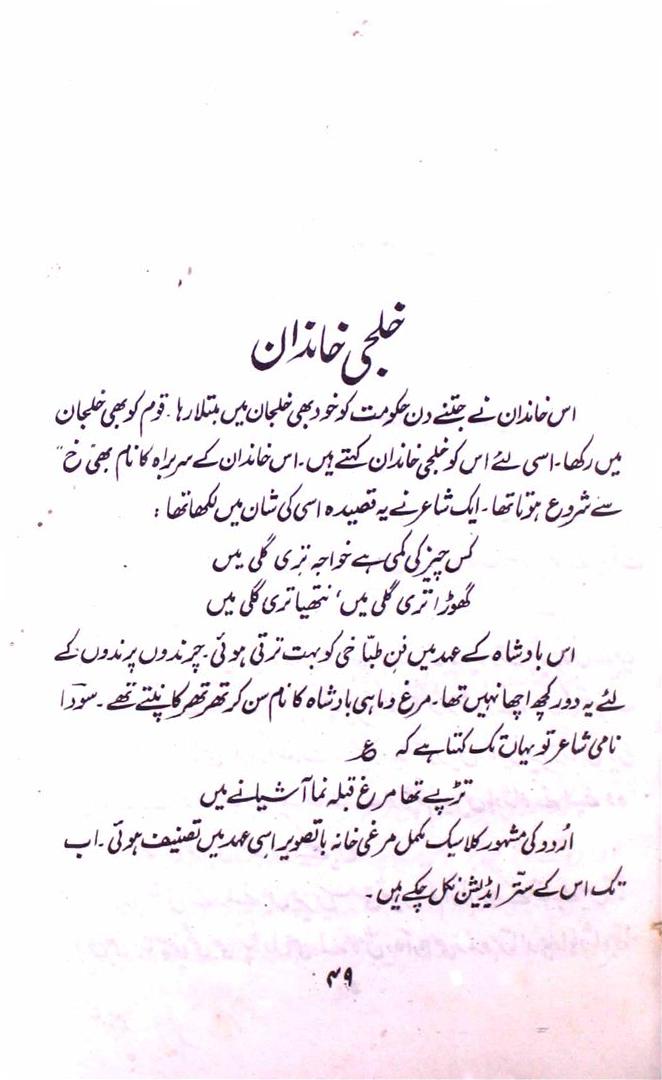 خلجی خاندان
اس خاندان نے جتنے دن حکومت کو خود بھی خلجان میں مبتلا رہا۔ قوم کو بھی خلجان
میں رکھا۔ اسی لئے اس کو خلجی خاندان کہتے ہیں۔ اس خاندان کے سربراہ کا نام بھی "خ"
سے شروع ہوتا تھا۔ ایک شاعر نے یہ قصیدہ اسی کی شان میں لکھا تھا :
کس چیز کی کمی ہے خواجہ تری گلی میں
گھوڑا تری گلی میں، نتھیا تری گلی میں
اس بادشاہ کے عہد میں فنِ طباخی کو بہت ترقی ہوئی۔ چرندوں پرندوں کے
لئے یہ دور کچھ اچھا نہیں تھا۔ مرغ و ماہی بادشاہ کا نام سن کر تھر تھر کانپتے تھے۔ سودا
نامی شاعر تو یہاں تک کہتا ہے کہ ؏
تڑپے تھا مرغ قبلہ نما آشیانے میں
اُردو کی مشہور کلاسیک مکمل مرغی خانہ باتصویر اسی عہد میں تصنیف ہوئی۔ اب
تک اس کے ستر ایڈیشن نکل چکے ہیں۔
۴۹